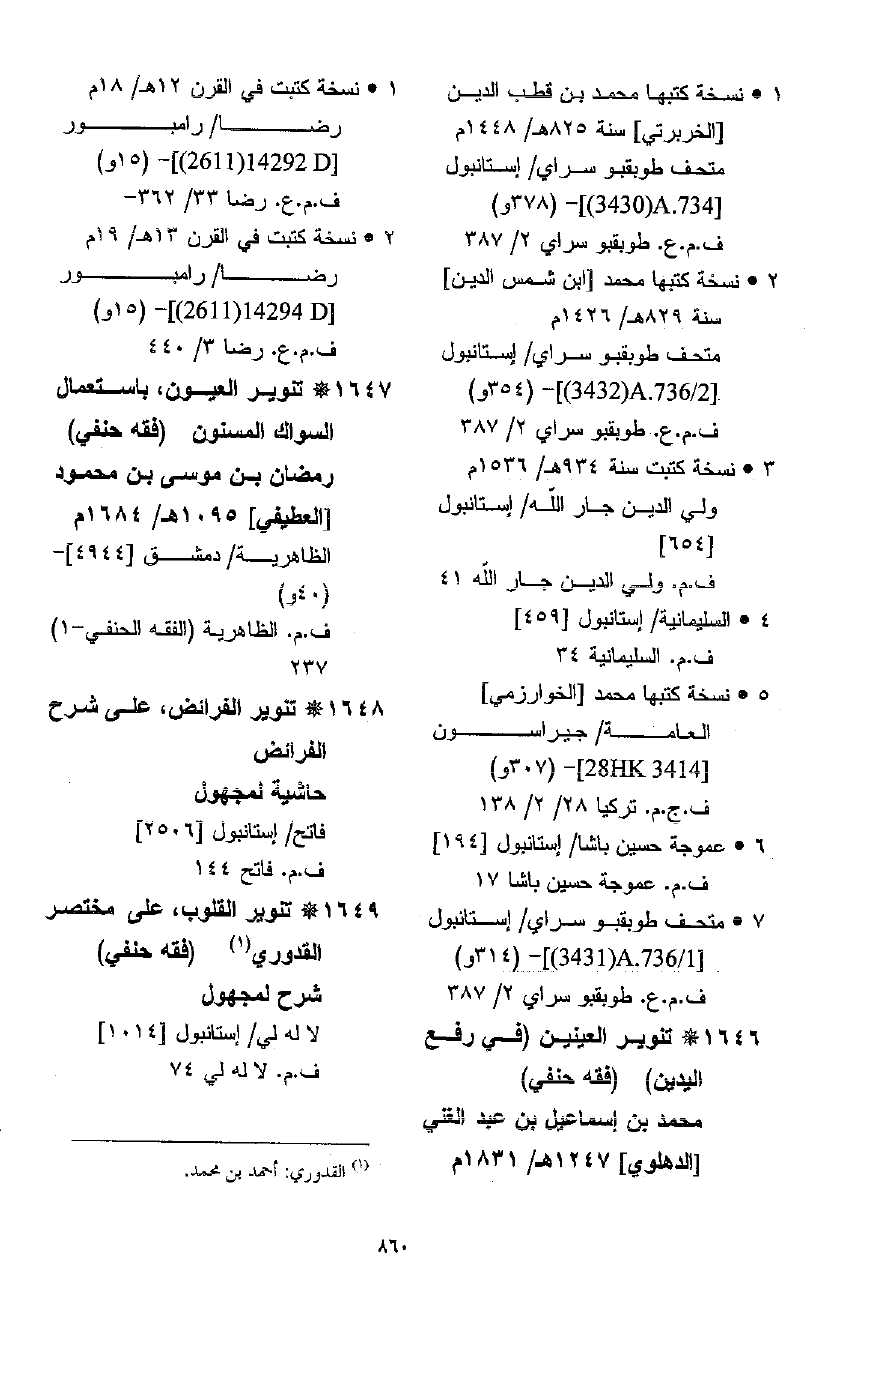 ١ • نسخة كتبها محمد بن قطب الدين
[الخربرتي] سنة ٨٢٥هـ/ ١٤٤٨م
متحف طوبقبو سراي/ إستانبول
[3430)A.734)]- (٣٧٨و)
ف.م.ع. طوبقبو سراي ٢/ ٣٨٧
٢ • نسخة كتبها محمد [ابن شمس الدين]
سنة ٨٢٩هـ/ ١٤٢٦م
متحف طوبقبو سراي/ إستانبول
[3432)A.736/2)]- (٣٥٤و)
ف.م.ع. طوبقبو سراي ٢/ ٣٨٧
٣ • نسخة كتبت سنة ٩٣٤هـ/ ١٥٣٦م
ولي الدين جار الله/ إستانبول
[٦٥٤]
ف.م. ولي الدين جار الله ٤١
٤ • السليمانية/ إستانبول [٤٥٩]
ف.م. السليمانية ٣٤
٥ • نسخة كتبها محمد [الخوارزمي]
العامة/ جيراسون
[28HK 3414]- (٣٠٧و)
ف.ج.م. تركيا ٢٨/ ٢/ ١٣٨
٦ • عموجة حسين باشا/ إستانبول [١٩٤]
ف.م. عموجة حسين باشا ١٧
٧ • متحف طوبقبو سراي/ إستانبول
[3431)A.736/1)]- (٣١٤و)
ف.م.ع. طوبقبو سراي ٢/ ٣٨٧
١٦٤٦❊ تنوير العينين (في رفع
اليدين) (فقه حنفي)
محمد بن إسماعيل بن عبد الغني
[الدهلوي] ١٢٤٧هـ/ ١٨٣١م
١ • نسخة كتبت في القرن ١٢هـ/ ١٨م
رضا/ رامبور
[2611)14292 D)]- (١٥و)
ف.م.ع. رضا ٣٣/ ٣٦٢-
٢ • نسخة كتبت في القرن ١٣هـ/ ١٩م
رضا/ رامبور
[2611)14294 D)]- (١٥و)
ف.م.ع. رضا ٣/ ٤٤٠
١٦٤٧❊ تنوير العيون، باستعمال
السواك المسنون (فقه حنفي)
رمضان بن موسى بن محمود
[العطيفي] ١٠٩٥هـ/ ١٦٨٤م
الظاهرية/ دمشق [٤٩٤٤]-
(٤٠و)
ف.م. الظاهرية (الفقه الحنفي-١)
٢٣٧
١٦٤٨❊ تنوير الفرائض، على شرح
الفرائض
حاشية لمجهول
فاتح/ إستانبول [٢٥٠٦]
ف.م. فاتح ١٤٤
١٦٤٩❊ تنوير القلوب، على مختصر
القدوري(١) (فقه حنفي)
شرح لمجهول
لا له لي/ إستانبول [١٠١٤]
ف.م. لا له لي ٧٤
(١) القدوري: أحمد بن محمد.
٨٦٠